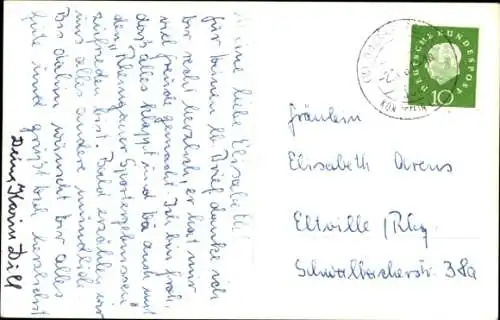 Meine liebe Elisabeth!
für deinen lb. Brief danke ich
dir recht herzlich, er hat mir
viel freude gemacht. Ich bin froh,
daß alles klappt und du auch mit
den "Rheingauer
zufrieden bist. Bald erzählen wir
uns alles andere mündlich.
Bis dahin wünscht dir alles
Gute und grüßt dich herzlichst
Deine Karin Dill
DEUTSCHE BUNDESPOST
10
fräulein
Elisabeth Arens
Eltville / Rhg.
Schwalbacherstr. 38a